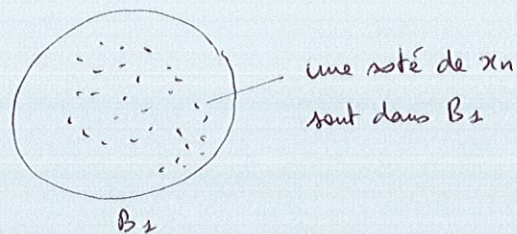 une soté de xn
sont dans B1
B1